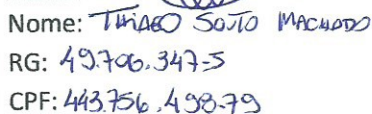 Nome: THIAGO SOUTO MACHADO
RG: 49.706.347-5
CPF: 443.756.498-79